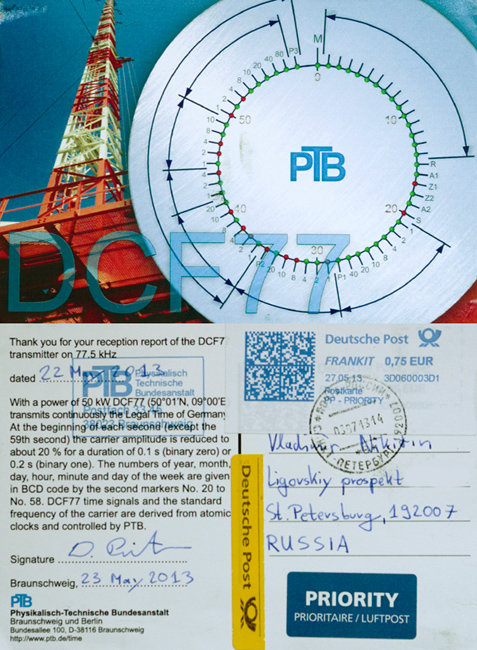 M
P3
0
10
R
A1
Z1
Z2
A2
S
20
30
P1
P2
40
50
PTB
DCF77
Thank you for your reception report of the DCF7
transmitter on 77.5 kHz
dated 22 May 2013
PTB Physikalisch
Technische
Bundesanstalt
Postfach 33 45
38023 Braunschweig
With a power of 50 kW DCF77 (50°01'N, 09°00'E
transmits continuously the Legal Time of Germany
At the beginning of each second (except the
59th second) the carrier amplitude is reduced to
about 20 % for a duration of 0.1 s (binary zero) or
0.2 s (binary one). The numbers of year, month,
day, hour, minute and day of the week are given
in BCD code by the second markers No. 20 to
No. 58. DCF77 time signals and the standard
frequency of the carrier are derived from atomic
clocks and controlled by PTB.
Signature
Braunschweig, 23 May 2013
PTB
Physikalisch-Technische Bundesanstalt
Braunschweig und Berlin
Bundesallee 100, D-38116 Braunschweig
http://www.ptb.de/time
Deutsche Post
FRANKIT 0,75 EUR
27.05.13 3D060003D1
Postkarte
PP - PRIORITY
Vladimir Nikitin
Ligovskiy prospekt
St. Petersburg, 192007
RUSSIA
Deutsche Post
PRIORITY
PRIORITAIRE / LUFTPOST